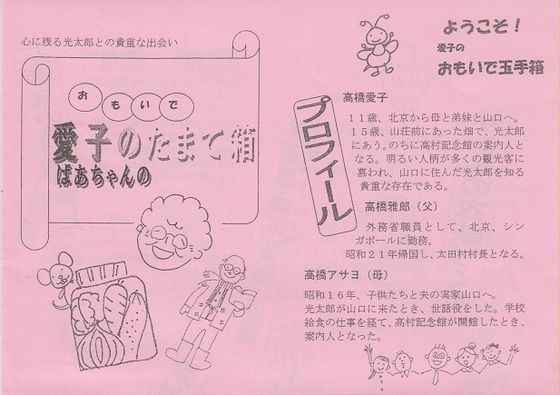 心に残る光太郎との貴重な出会い
おもいで
愛子のたまて箱
ばあちゃんの
ようこそ!
愛子の
おもいで玉手箱
プロフィール
高橋愛子
11歳、北京から母と弟妹と山口へ。
15歳、山荘前にあった畑で、光太郎
にあう。のちに高村記念館の案内人と
なる。明るい人柄が多くの観光客に
慕われ、山口に住んだ光太郎を知る
貴重な存在である。
高橋雅郎(父)
外務省職員として、北京、シン
ガポールに勤務。
昭和21年帰国し、太田村村長となる。
高橋アサヨ(母)
昭和16年、子供たちと夫の実家山口へ。
光太郎が山口に来たとき、世話役をした。学校
給食の仕事を経て、高村記念館が開館したとき、
案内人となった。